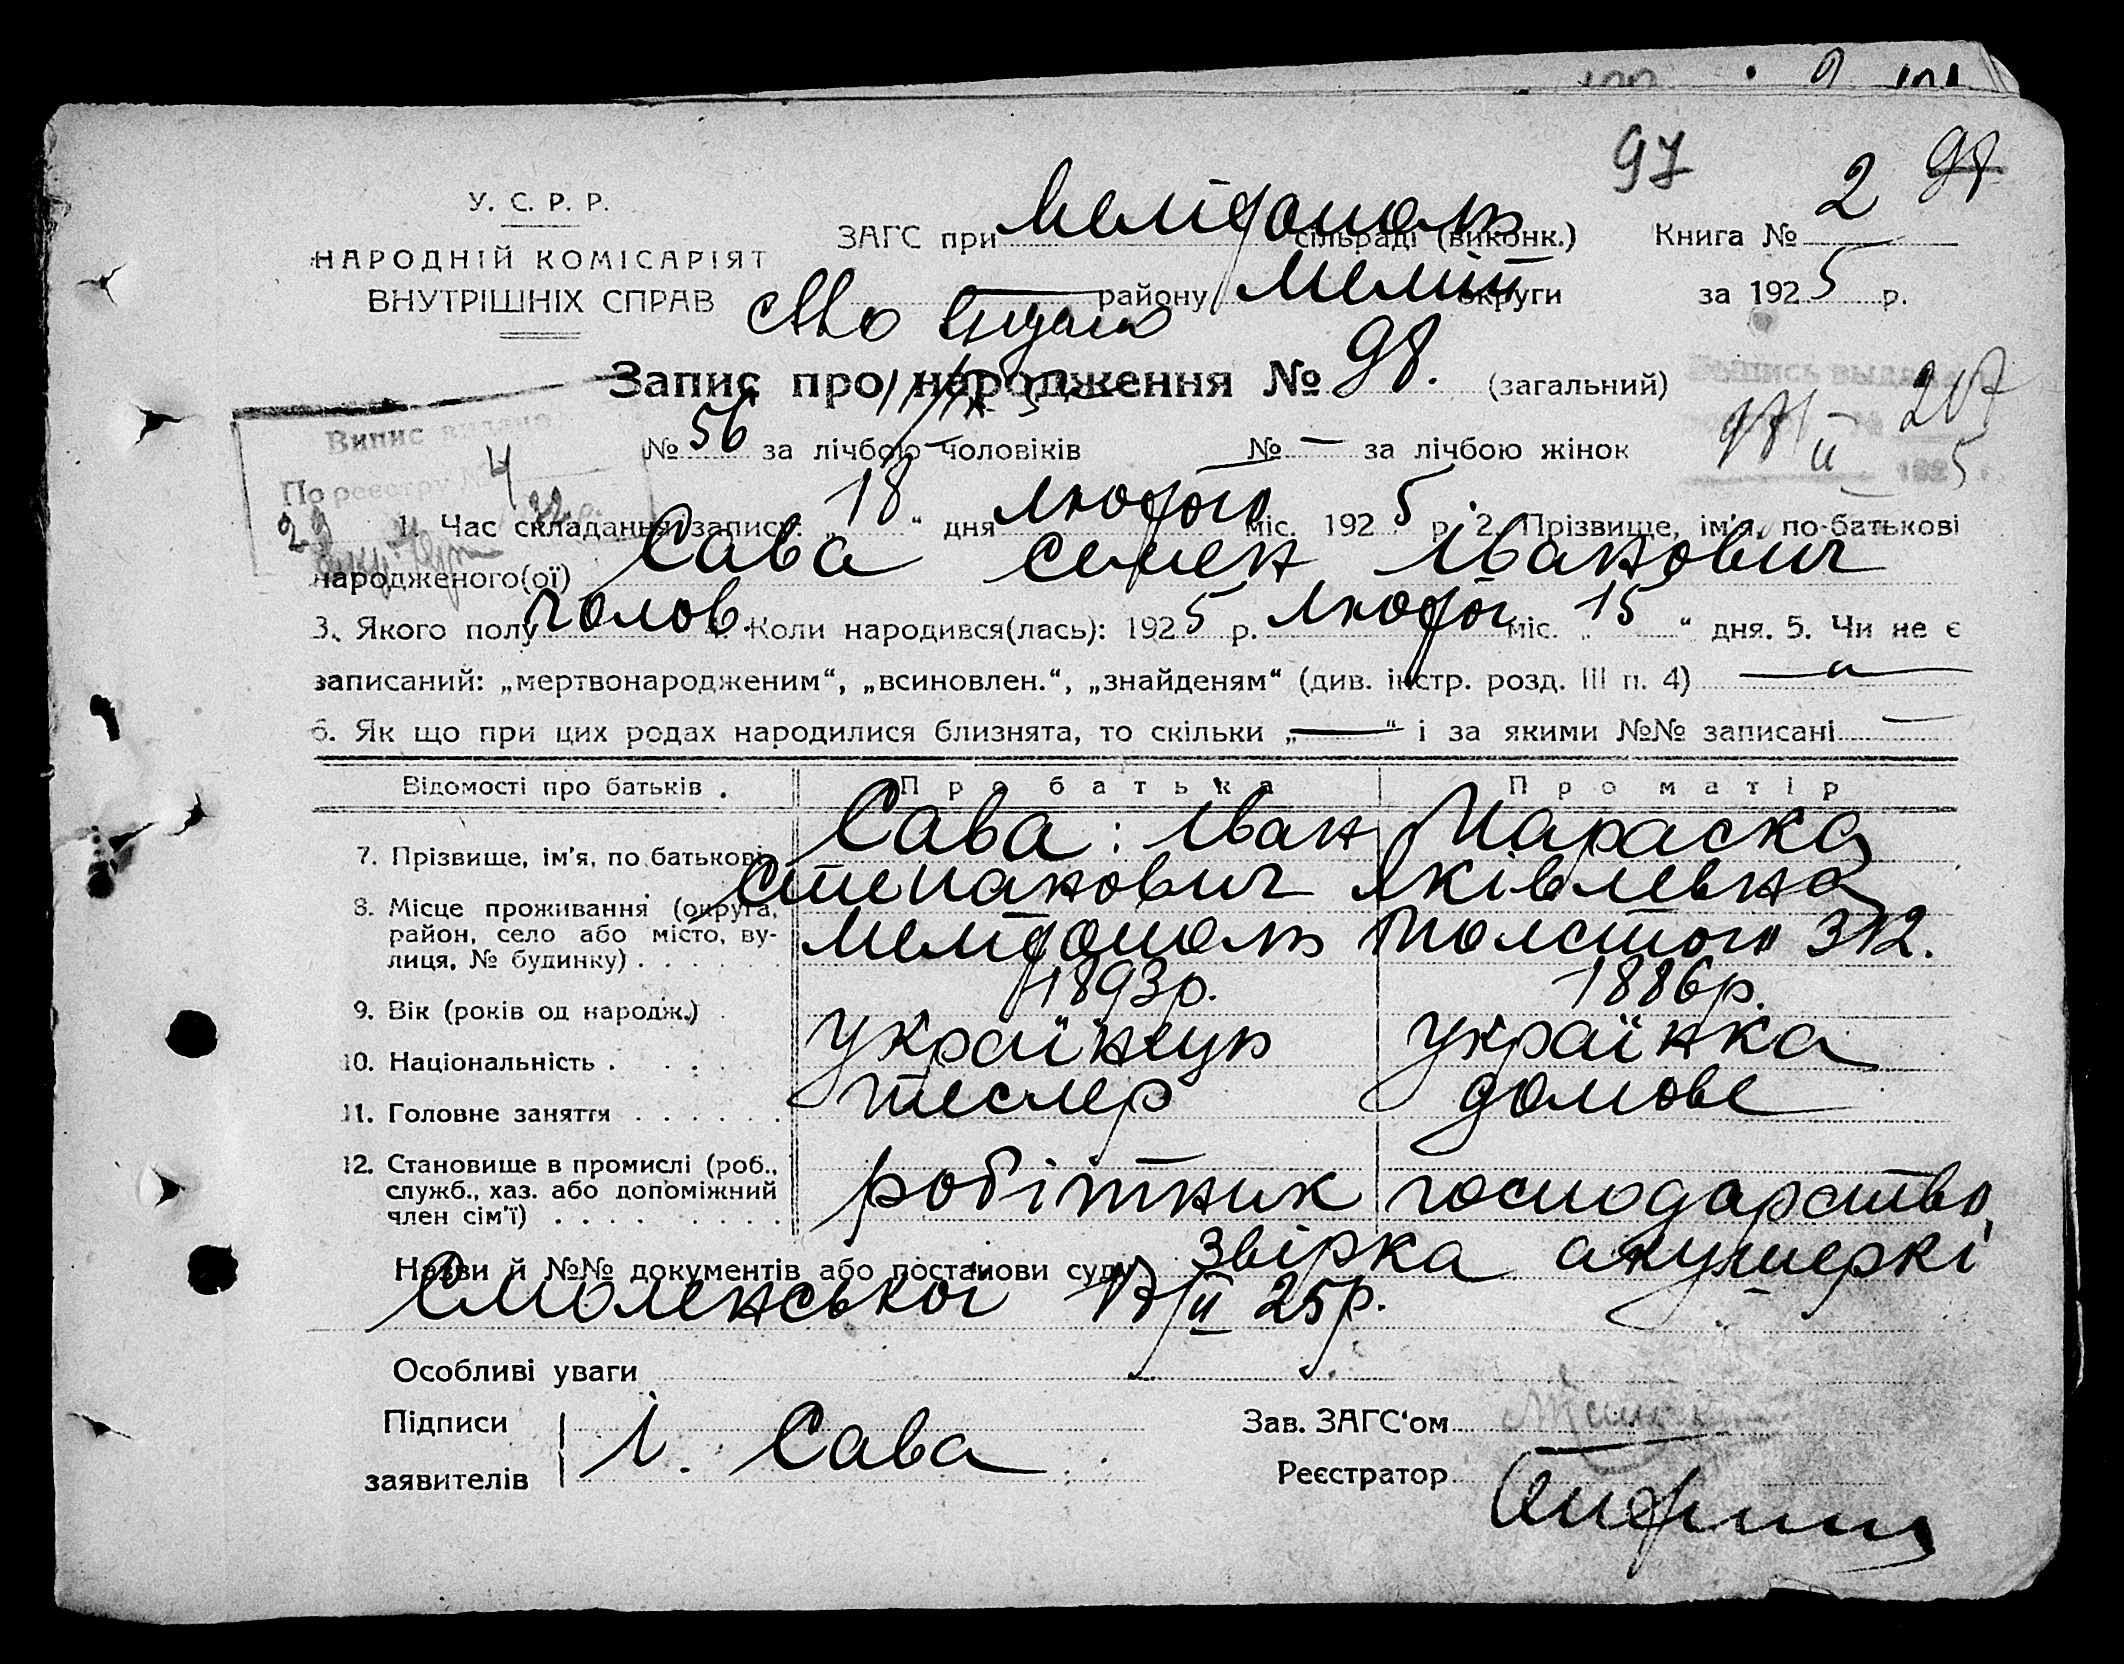 97
2 98
У. С. Р. Р.
НАРОДНІЙ КОМІСАРІЯТ
ВНУТРІШНІХ СПРАВ
ЗАГС при Мелітополь сільраді (виконк.) Книга №
району Меліт округи за 1925 р.
Запис про народження № 98. (загальний)
№ 56 за лічбою чоловіків № — за лічбою жінок
Випис видано
По реєстру № 4
1. Час складання запису: „18“ дня лютого міс. 1925 р. 2. Прізвище, ім'я, по-батькові
народженого(ої) Сава Семен Іванович
3. Якого полу чолов. 4. Коли народився(лась): 1925 р. лютог міс. „15“ дня. 5. Чи не є
записаний: „мертвонародженим“, „всиновлен.“, „знайденям“ (див. інстр. розд. III п. 4) —
6. Як що при цих родах народилися близнята, то скільки „—“ і за якими №№ записані —
Відомості про батьків . Про батька Про матір
7. Прізвище, ім'я, по батькові Сава: Іван Степанович Параска Яківлевна
8. Місце проживання (округа, район, село або місто, вулиця, № будинку) . . . . . . Мелітополь Толстого 312.
9. Вік (років од народж.) . 1893р. 1886р.
10. Національність . . . . українець українка
11. Головне заняття . . . . . . тесляр домове
12. Становище в промислі (роб., служб., хаз. або допоміжний член сім'ї) . . . . . . . . робітник господарство
Назви й №№ документів або постанови суду Звірка акушеркі
Смоленської 17/II 25р.
Особливі уваги
Підписи
заявителів І. Сава
Зав. ЗАГС'ом
Реєстратор